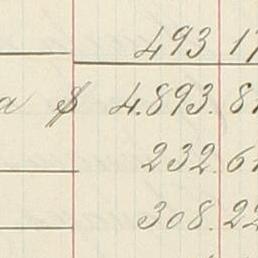 493 17
a $ 4.893. 81
232. 61
308. 22